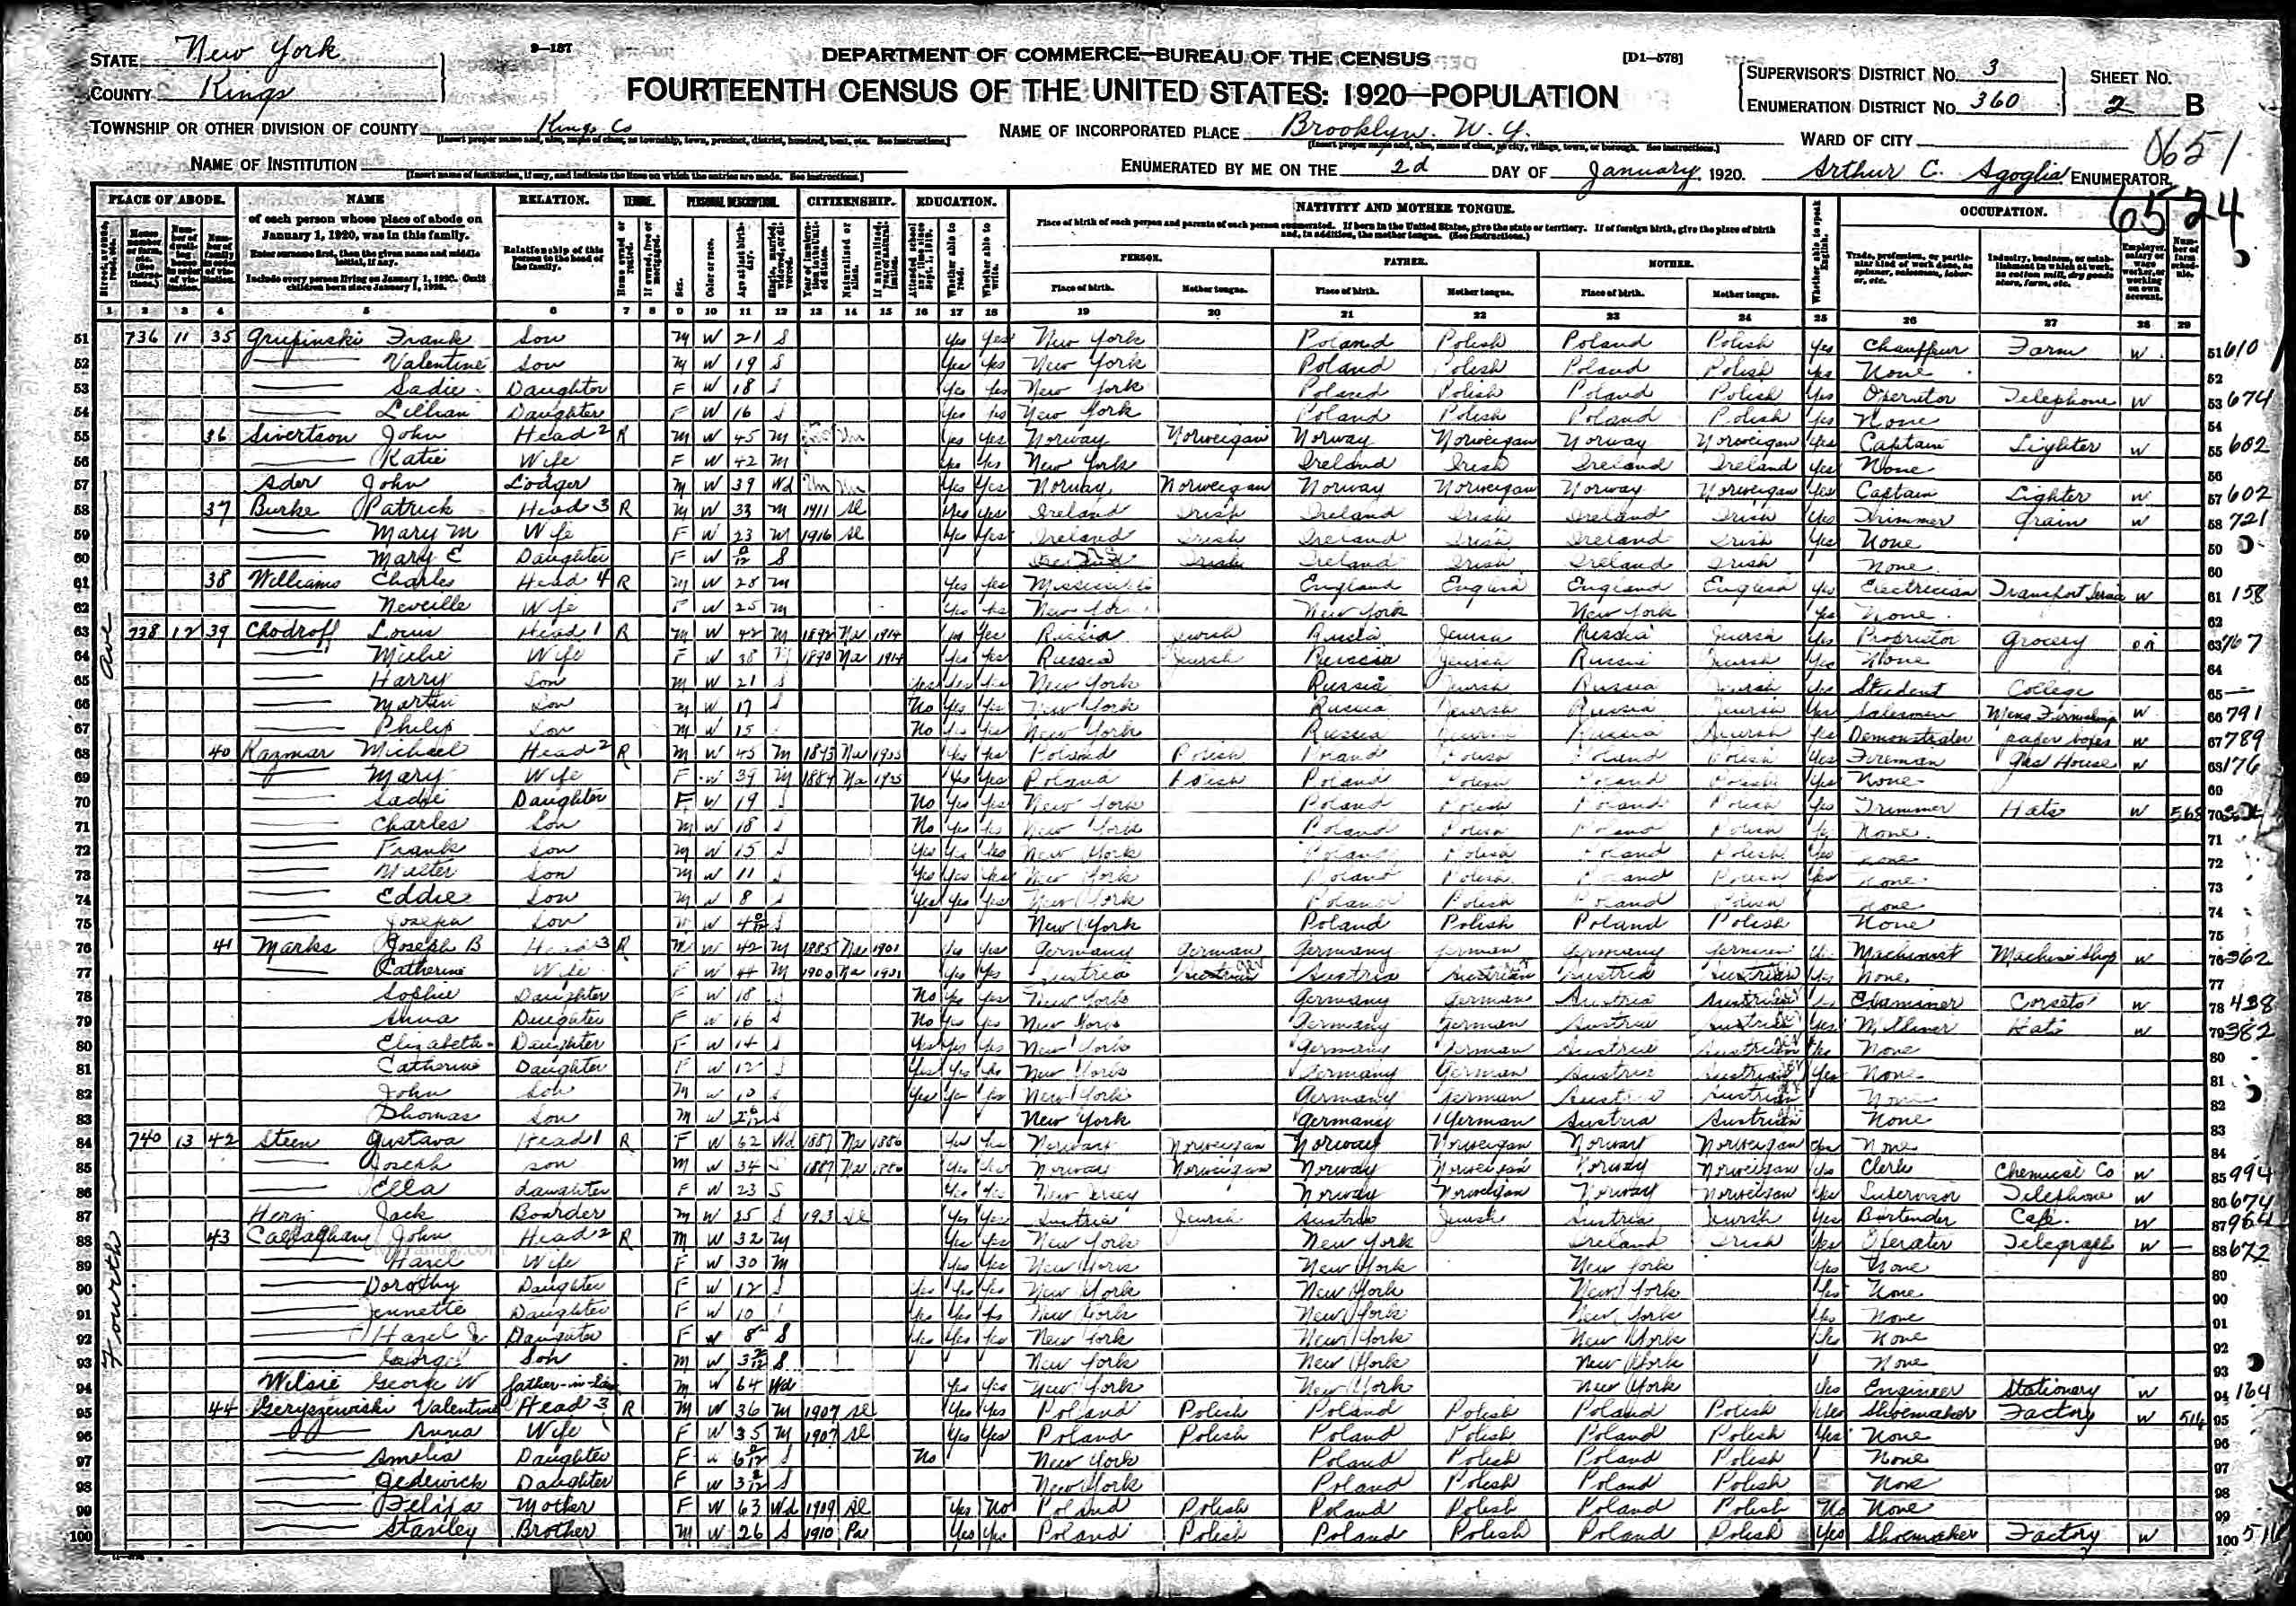 STATE New York
COUNTY Kings
9—187
DEPARTMENT OF COMMERCE—BUREAU OF THE CENSUS
[D1—578]
FOURTEENTH CENSUS OF THE UNITED STATES: 1920—POPULATION
SUPERVISOR'S DISTRICT No. 3
ENUMERATION DISTRICT No. 360
SHEET No. 2 B
TOWNSHIP OR OTHER DIVISION OF COUNTY Kings Co
NAME OF INCORPORATED PLACE Brooklyn. N. Y.
WARD OF CITY
NAME OF INSTITUTION
ENUMERATED BY ME ON THE 2d DAY OF January, 1920. Arthur C. Agoglia ENUMERATOR
6524
PLACE OF ABODE. NAME RELATION. TENURE. PERSONAL DESCRIPTION. CITIZENSHIP. EDUCATION. NATIVITY AND MOTHER TONGUE. OCCUPATION.
of each person whose place of abode on January 1, 1920, was in this family.
Enter surname first, then the given name and middle initial, if any.
Include every person living on January 1, 1920. Omit children born since January 1, 1920.
Relationship of this person to the head of the family.
Place of birth of each person and parents of each person enumerated. If born in the United States, give the state or territory. If of foreign birth, give the place of birth and, in addition, the mother tongue. (See Instructions.)
PERSON. FATHER. MOTHER.
Place of birth. Mother tongue. Place of birth. Mother tongue. Place of birth. Mother tongue.
1 2 3 4 5 6 7 8 9 10 11 12 13 14 15 16 17 18 19 20 21 22 23 24 25 26 27 28 29
Fourth Ave
51 736 11 35 Grupinski Frank Son M W 21 S Yes Yes New York Poland Polish Poland Polish Yes Chauffeur Farm W 51 610
52 Valentine Son M W 19 S Yes Yes New York Poland Polish Poland Polish Yes None 52
53 Sadie Daughter F W 18 S Yes Yes New York Poland Polish Poland Polish Yes Operator Telephone W 53 674
54 Lillian Daughter F W 16 S Yes Yes New York Poland Polish Poland Polish Yes None 54
55 36 Sivertson John Head 2 R M W 45 M Yes Yes Norway Norweigan Norway Norweigan Norway Norweigan Yes Captain Lighter W 55 602
56 Katie Wife F W 42 M Yes Yes New York Ireland Irish Ireland Ireland Yes None 56
57 Ader John Lodger M W 39 Wd Un Un Yes Yes Norway Norweigan Norway Norweigan Norway Norweigan Yes Captain Lighter W 57 602
58 37 Burke Patrick Head 3 R M W 33 M 1911 Al Yes Yes Ireland Irish Ireland Irish Ireland Irish Yes Trimmer Grain W 58 721
59 Mary M Wife F W 23 M 1916 Al Yes Yes Ireland Irish Ireland Irish Ireland Irish Yes None 59
60 Mary E Daughter F W 0/12 S Irish Ireland Irish Ireland Irish None 60
61 38 Williams Charles Head 4 R M W 28 M Yes Yes Mississippi England English England English Yes Electrician Transport Service W 61 158
62 Neveille Wife F W 25 M Yes Yes New York New York New York Yes None 62
63 738 12 39 Chodroff Louis Head 1 R M W 42 M 1892 Na 1914 Yes Yes Russia Jewish Russia Jewish Russia Jewish Yes Proprietor Grocery OA 63 767
64 Wife F W 38 M 1890 Na 1914 Yes Yes Russia Jewish Russia Jewish Russia Jewish Yes None 64
65 Harry Son M W 21 S Yes Yes Yes New York Russia Jewish Russia Jewish Yes Student College 65
66 Martin Son M W 17 S No Yes Yes New York Russia Jewish Russia Jewish Yes Salesman Mens Furnishing W 66 791
67 Philip Son M W 15 S No Yes Yes New York Russia Jewish Russia Jewish Yes Demonstrator paper boxes W 67 789
68 40 Kazmar Michael Head 2 R M W 45 M Na Yes Yes Poland Polish Poland Polish Poland Polish Yes Fireman Gas House W 68 176
69 Mary Wife F W 39 M 1884 Na Yes Yes Poland Polish Poland Polish Poland Polish Yes None 69
70 Sadie Daughter F W 19 S No Yes Yes New York Poland Polish Poland Polish Yes Trimmer Hats W 568 70
71 Charles Son M W 18 S No Yes Yes New York Poland Polish Poland Polish None 71
72 Frank Son M W 15 S Yes Yes Yes New York Poland Polish Poland Polish Yes None 72
73 Walter Son M W 11 S Yes Yes Yes New York Poland Polish Poland Polish Yes None 73
74 Eddie Son M W 8 S Yes Yes Yes New York Poland Polish Poland Polish None 74
75 Joseph Son M W S New York Poland Polish Poland Polish None 75
76 41 Marks Joseph B Head 3 R M W 42 M 1885 Na 1901 Yes Yes Germany German Germany German Germany German Yes Machinist Machine Shop W 76 362
77 Catherine Wife F W 44 M 1900 Na 1901 Yes Yes Austria Austrian Austria Austrian Austria Austrian Yes None 77
78 Sophie Daughter F W 18 S No Yes Yes New York Germany German Austria Austrian Yes Examiner Corsets W 78 438
79 Anna Daughter F W 16 S No Yes Yes New York Germany German Austria Austrian Yes Milliner Hats W 79 382
80 Elizabeth Daughter F W 14 S Yes Yes Yes New York Germany German Austria Austrian Yes None 80
81 Catherine Daughter F W 12 S Yes Yes Yes New York Germany German Austria Austrian Yes None 81
82 John Son M W 10 S Yes Yes Yes New York Germany German Austria Austrian None 82
83 Thomas Son M W S New York Germany German Austria Austrian None 83
84 740 13 42 Steen Gustava Head 1 R F W 62 Wd 1887 Na Yes Yes Norway Norweigan Norway Norweigan Norway Norweigan Yes None 84
85 Joseph son M W 34 S 1887 Na Yes Yes Norway Norweigan Norway Norweigan Norway Norweigan Yes Clerk Chemical Co W 85 994
86 Ella daughter F W 23 S Yes Yes New Jersey Norway Norweigan Norway Norweigan Yes Supervisor Telephone W 86 674
87 Jack Boarder M W 25 S Al Yes Yes Austria Jewish Austria Jewish Austria Jewish Yes Bartender Cafe W 87 964
88 43 Callaghan John Head 2 R M W 32 M Yes Yes New York New York Ireland Irish Yes Operator Telegraph W 88 672
89 Hazel Wife F W 30 M Yes Yes New York New York New York Yes None 89
90 Dorothy Daughter F W 12 S Yes Yes Yes New York New York New York Yes None 90
91 Jennette Daughter F W 10 S Yes Yes Yes New York New York New York Yes None 91
92 Hazel Daughter F W 8 S Yes Yes Yes New York New York New York Yes None 92
93 George Son M W 3 2/12 S New York New York New York None 93
94 Wilsie George W father-in-law M W 64 Wd Yes Yes New York New York New York Yes Engineer Stationary W 94 164
95 44 Geryszewski Valentine Head 3 R M W 36 M 1907 Al Yes Yes Poland Polish Poland Polish Poland Polish Yes Shoemaker Factory W 514 95
96 Anna Wife F W 35 M 1907 Al Yes Yes Poland Polish Poland Polish Poland Polish Yes None 96
97 Amelia Daughter F W S No New York Poland Polish Poland Polish None 97
98 Jedewick Daughter F W S New York Poland Polish Poland Polish None 98
99 Mother F W 63 Wd 1909 Al Yes No Poland Polish Poland Polish Poland Polish No None 99
100 Stanley Brother M W 26 S 1910 Pa Yes Yes Poland Polish Poland Polish Poland Polish Yes Shoemaker Factory W 100